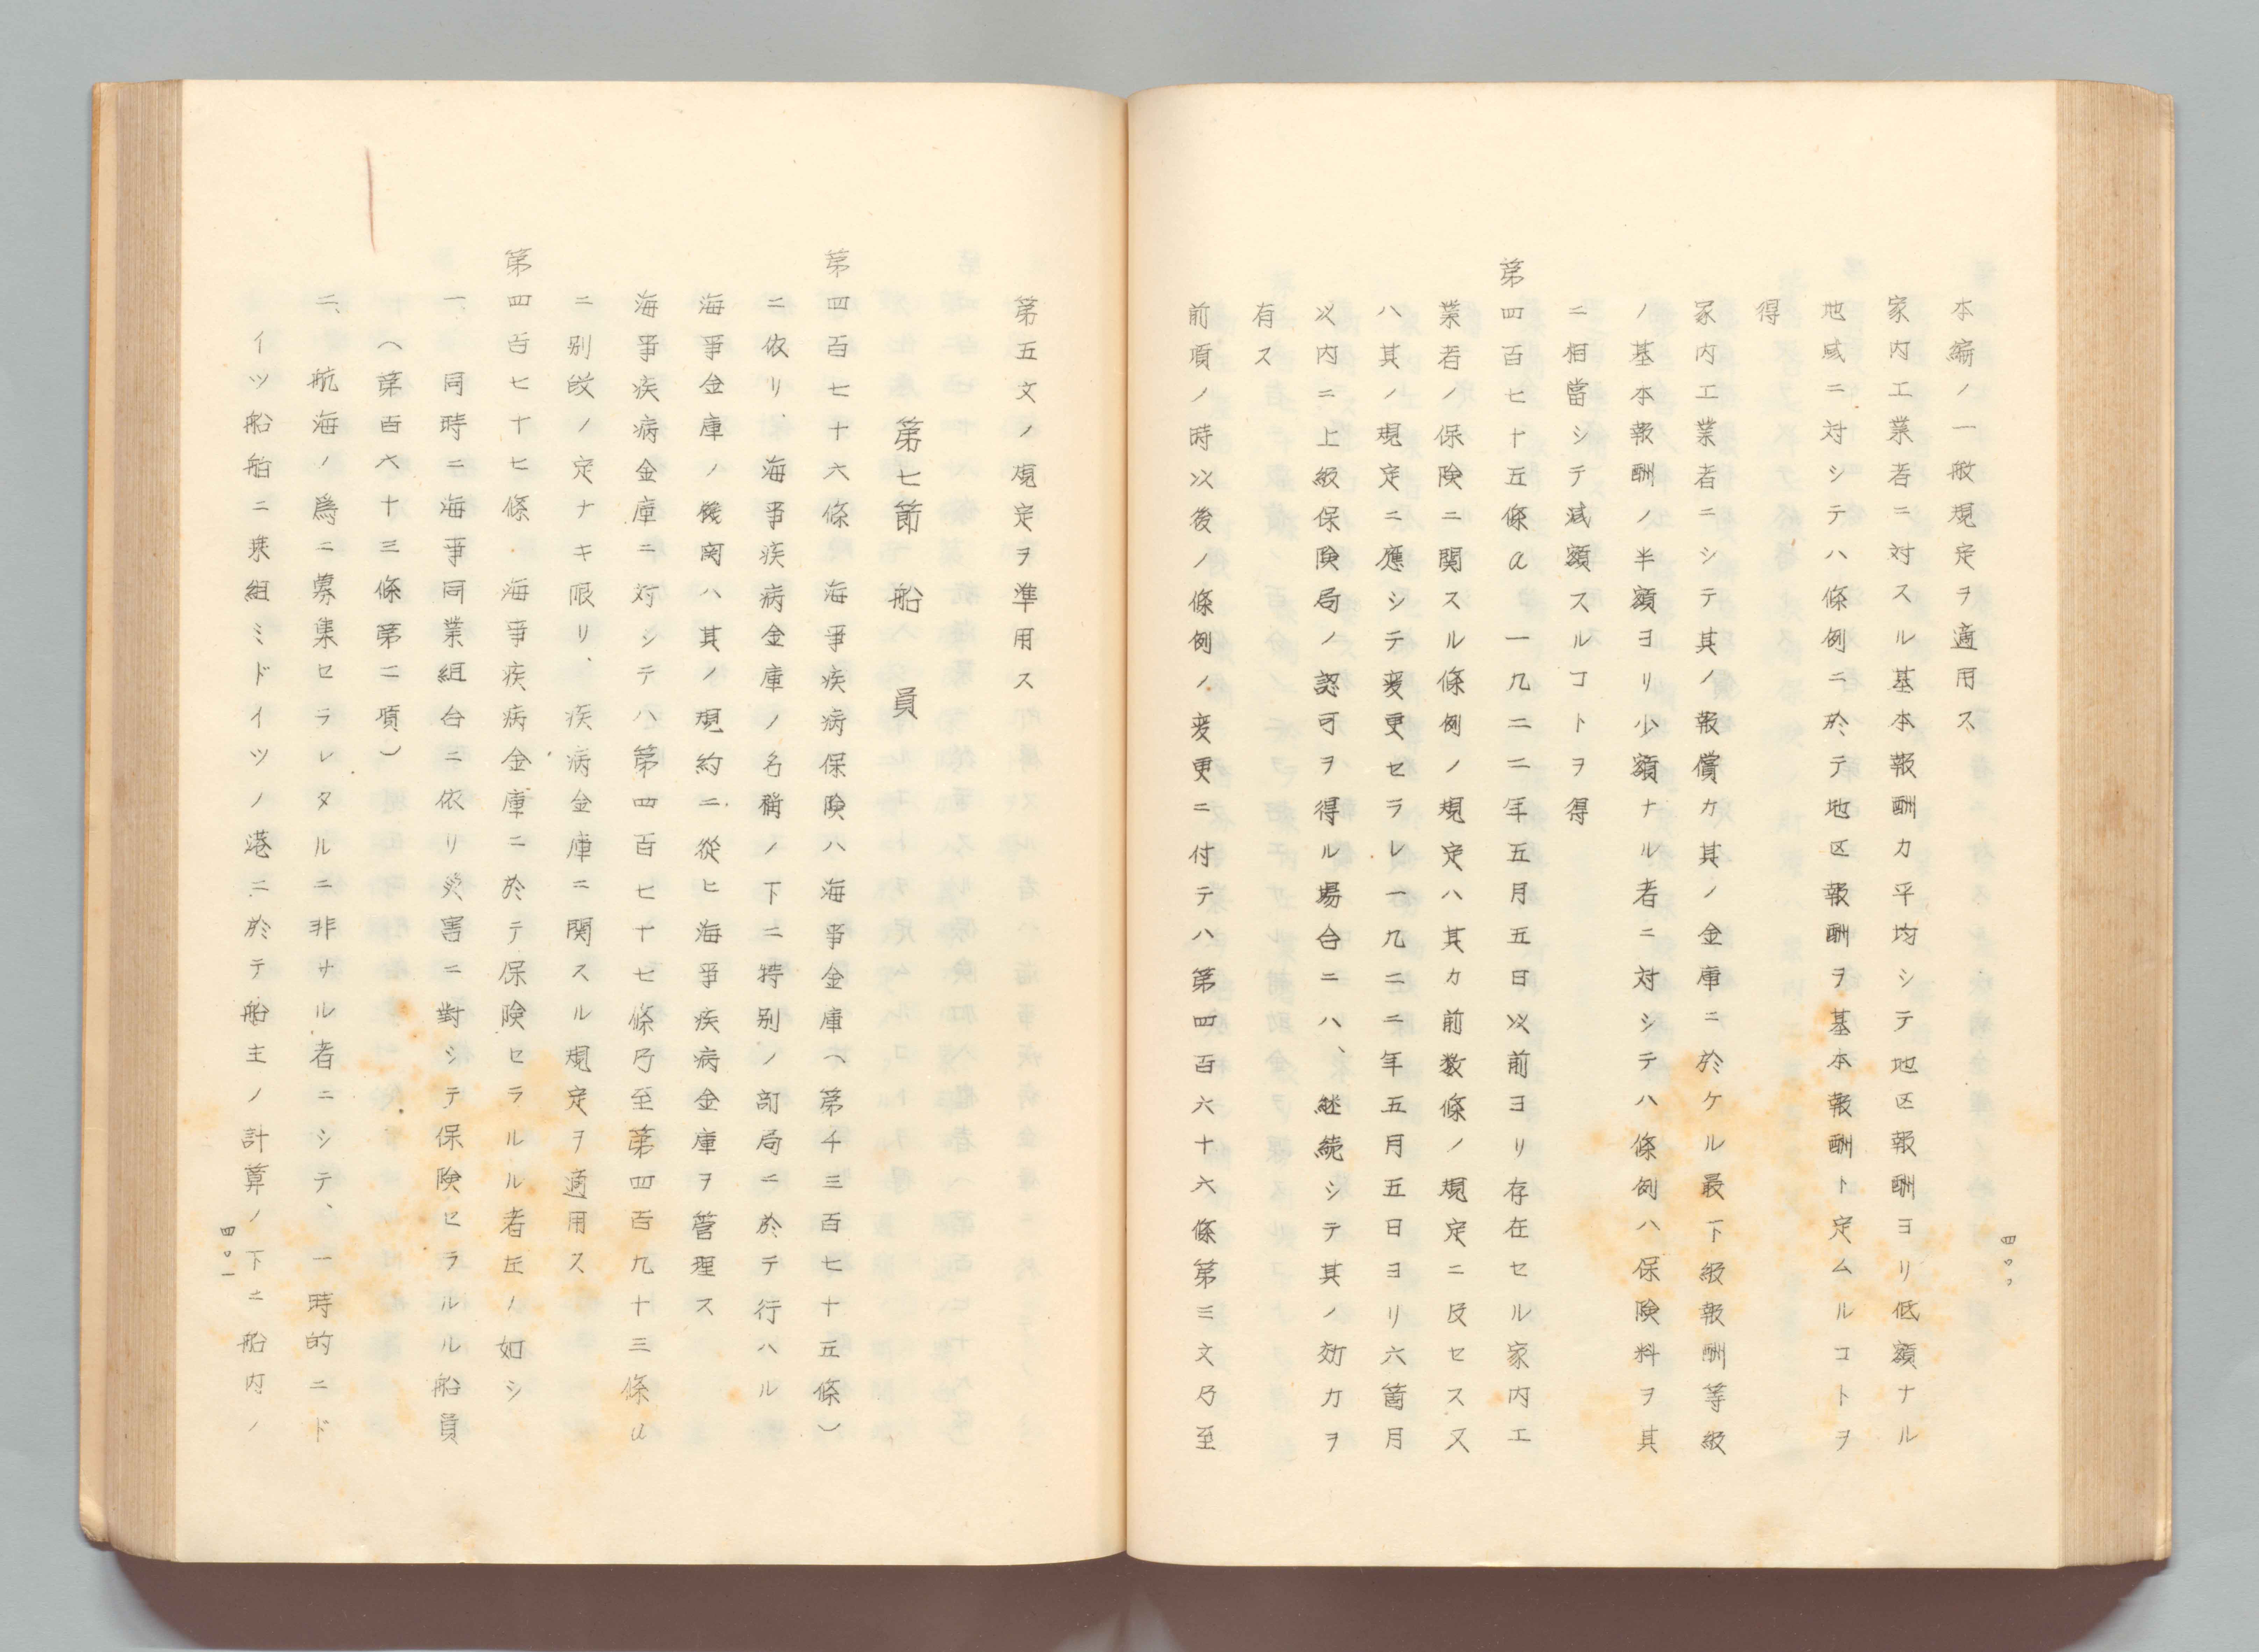 本編ノ一般規定ヲ適用ス
家内工業者ニ対スル基本報酬カ平均シテ地区報酬ヨリ低額ナル
地域ニ対シテハ條例ニ於テ地区報酬ヲ基本報酬ト定ムルコトヲ
得
家内工業者ニシテ其ノ報償カ其ノ金庫ニ於ケル最下級報酬等級
ノ基本報酬ノ半額ヨリ少額ナル者ニ対シテハ條例ハ保険料ヲ其
ニ相當シテ減額スルコトヲ得
第四百七十五條a 一九二二年五月五日以前ヨリ存在セル家内工
業者ノ保険ニ関スル條例ノ規定ハ其カ前数條ノ規定ニ反セス又
ハ其ノ規定ニ應シテ変更セラレ一九二二年五月五日ヨリ六箇月
以内ニ上級保険局ノ認可ヲ得ル場合ニハ、継続シテ其ノ効力ヲ
有ス
前項ノ時以後ノ條例ノ変更ニ付テハ第四百六十六條第三文乃至
四〇〇
第五文ノ規定ヲ準用ス
第七節 船員
第四百七十六條 海事疾病保険ハ海事金庫(第千三百七十五條)
ニ依リ、海事疾病金庫ノ名稱ノ下ニ特別ノ部局ニ於テ行ハル
海事金庫ノ機関ハ其ノ規約ニ從ヒ海事疾病金庫ヲ管理ス
海事疾病金庫ニ対シテハ第四百七十七條乃至第四百九十三條a
ニ別段ノ定ナキ限リ、疾病金庫ニ関スル規定ヲ適用ス
第四百七十七條 海事疾病金庫ニ於テ保険セラルル者左ノ如シ
一、同時ニ海事同業組合ニ依リ災害ニ對シテ保険セラルル船員
(第百六十三條第二項)
二、航海ノ爲ニ募集セラレタルニ非サル者ニシテ、一時的ニド
イツ船舶ニ乗組ミドイツノ港ニ於テ船主ノ計算ノ下ニ船内ノ
四〇一